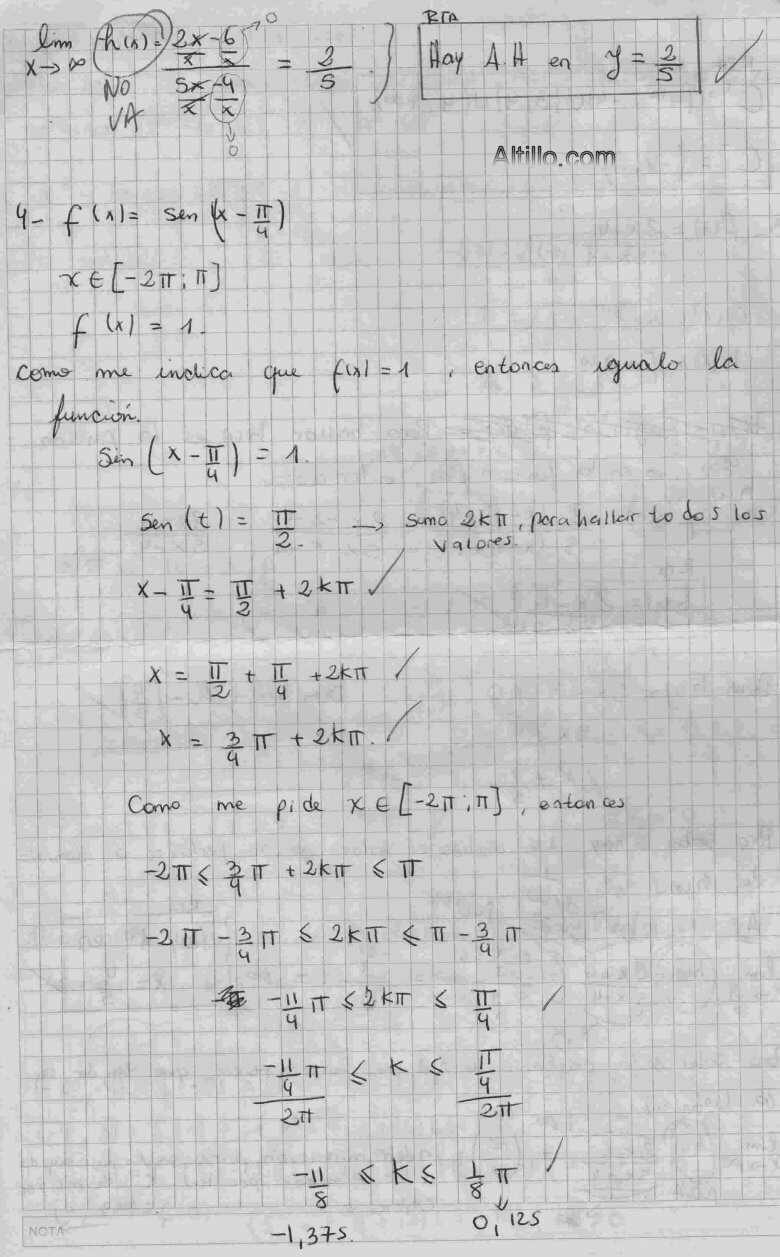 RTA
lim x→∞ h(x) = (2x/x - 6/x) / (5x/x - 4/x) = 2/5 } Hay A.H en y = 2/5 ✓
→0
NO VA
↓ 0
Altillo.com
4- f(x) = sen (x - π/4)
x ∈ [-2π; π]
f(x) = 1.
Como me indica que f(x) = 1, entonces igualo la
función.
Sen (x - π/4) = 1.
Sen (t) = π/2. → Sumo 2kπ, para hallar todos los
valores.
x - π/4 = π/2 + 2kπ ✓
x = π/2 + π/4 + 2kπ ✓
x = 3/4 π + 2kπ. ✓
Como me pide x ∈ [-2π; π], entonces
-2π ≤ 3/4 π + 2kπ ≤ π
-2π - 3/4 π ≤ 2kπ ≤ π - 3/4 π
-11/4 π ≤ 2kπ ≤ π/4 ✓
(-11/4 π)/2π ≤ k ≤ (π/4)/2π
-11/8 ≤ k ≤ 1/8 π ✓
-1,375. ↓ 0,125
NOTA